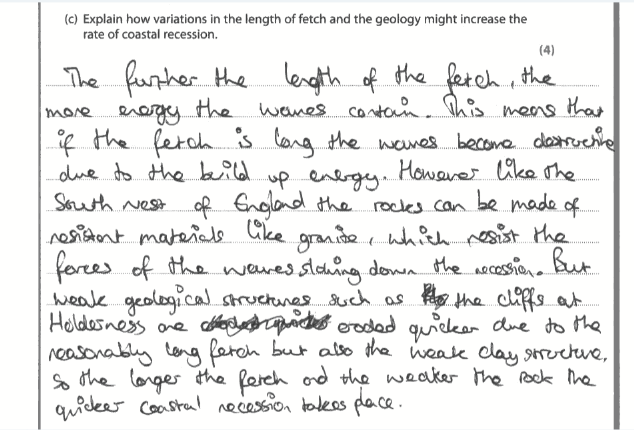 (c) Explain how variations in the length of fetch and the geology might increase the
rate of coastal recession.
(4)
The further the length of the fetch, the
more energy the waves contain. This means that
if the fetch is long the waves become destructive
due to the build up energy. However like the
South West of England the rocks can be made of
resistant materials like granite, which resist the
forces of the waves slowing down the recession. But
weak geological structures such as the cliffs at
Holderness are eroded quicker due to the
reasonably long fetch but also the weak clay structure,
so the longer the fetch and the weaker the rock the
quicker coastal recession takes place.